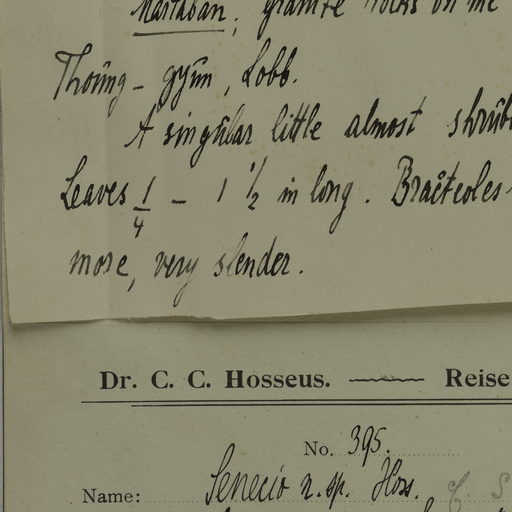 Martaban; granite rocks on the
Thoung-gyun, Lobb.
A singular little almost shrub
Leaves 1/4 - 1 1/2 in long. Bracteoles
more, very slender.
Dr. C. C. Hosseus. Reise
No. 395.
Name: Senecio n. sp. Hoss.